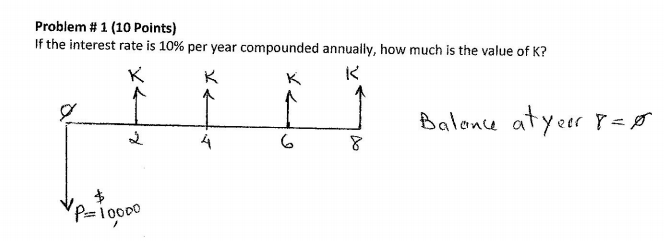 Problem # 1 (10 Points)
If the interest rate is 10% per year compounded annually, how much is the value of K?
K K K K
0
2 4 6 8
Balance at year 8 = 0
$
P=10,000